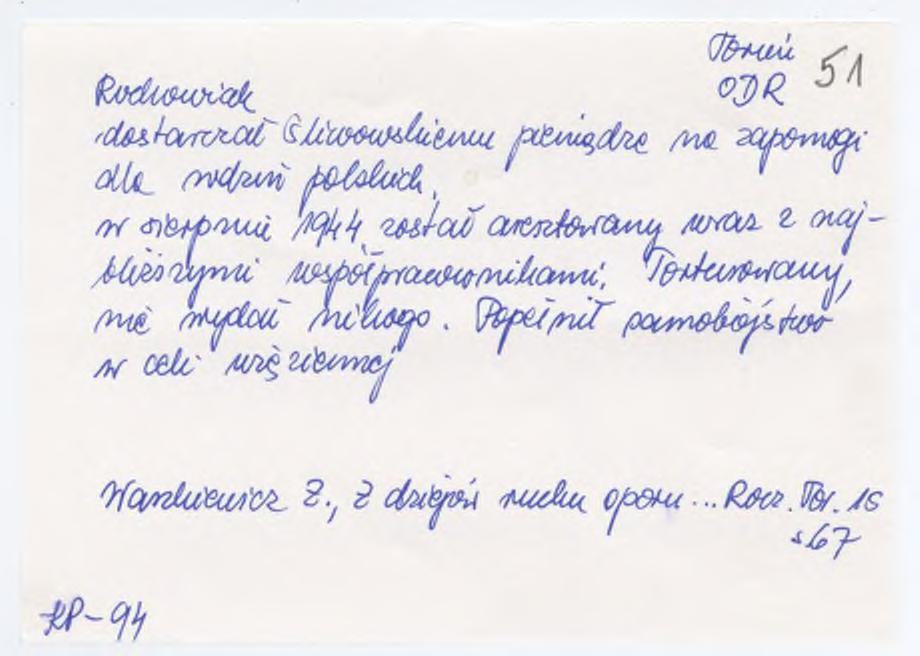 Toruń 51
ODR
Rochowiak
dostarczał Śliwowskiemu pieniądze na zapomogi
dla rodzin polskich,
w sierpniu 1944 został aresztowany wraz z naj-
bliższymi współpracownikami. Torturowany,
nie wydał nikogo. Popełnił samobójstwo
w celi więziennej
Waszkiewicz Z., Z dziejów ruchu oporu... Rocz. Tor. 15
s.67
KP-94